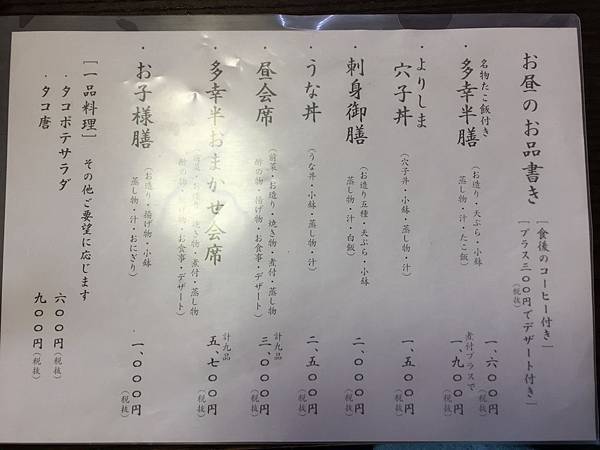 お昼のお品書き
［食後のコーヒー付き］
［プラス三〇〇円でデザート付き］
（税抜）
名物たこ飯付き
・多幸半膳
（お造り・天ぷら・小鉢
蒸し物・汁・たこ飯）
一、六〇〇円
（税抜）
煮付プラスで
一、九〇〇円
（税抜）
・よりしま
穴子丼
（穴子丼・小鉢・蒸し物・汁）
一、五〇〇円
（税抜）
・刺身御膳
（お造り五種・天ぷら・小鉢
蒸し物・汁・白飯）
二、〇〇〇円
（税抜）
・うな丼
（うな丼・小鉢・蒸し物・汁）
二、五〇〇円
（税抜）
・昼会席
（前菜・お造り・焼き物・煮付・蒸し物
酢の物・揚げ物・お食事・デザート）
計九品
三、〇〇〇円
（税抜）
・多幸半おまかせ会席
（前菜・お造り・焼き物・煮付・蒸し物
酢の物・揚げ物・お食事・デザート）
計九品
五、七〇〇円
（税抜）
・お子様膳
（お造り・揚げ物・小鉢
蒸し物・汁・おにぎり）
一、〇〇〇円
（税抜）
［一品料理］　その他ご要望に応じます
・タコポテサラダ
六〇〇円（税抜）
・タコ唐
九〇〇円（税抜）